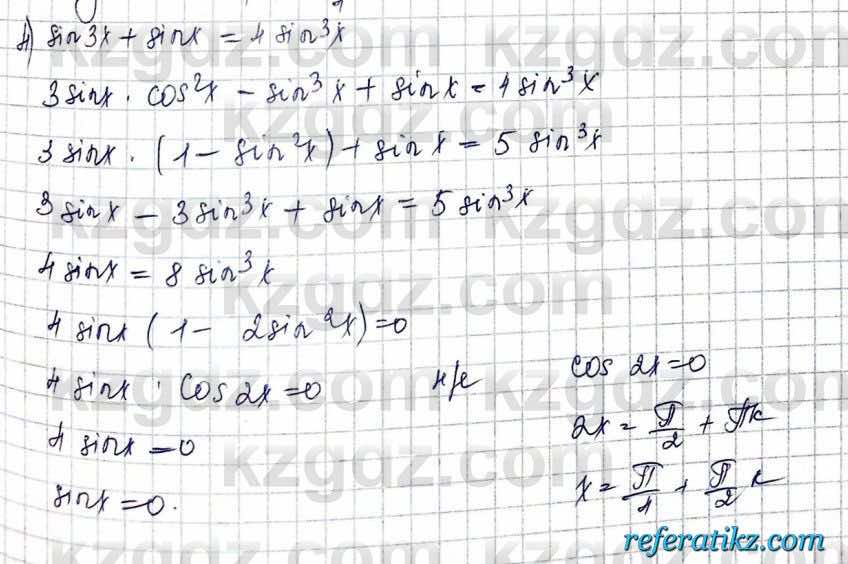 4) sin3x + sinx = 4 sin³x
3 sinx · cos²x − sin³x + sinx = 4 sin³x
3 sinx · (1 − sin²x) + sinx = 5 sin³x
3 sinx − 3 sin³x + sinx = 5 sin³x
4 sinx = 8 sin³x
4 sinx (1 − 2sin²x) = 0
4 sinx · cos2x = 0
4 sinx = 0
sinx = 0.
cos 2x = 0
2x = π/2 + πk
x = π/4 + π/2 k
kzgdz.com
referatikz.com